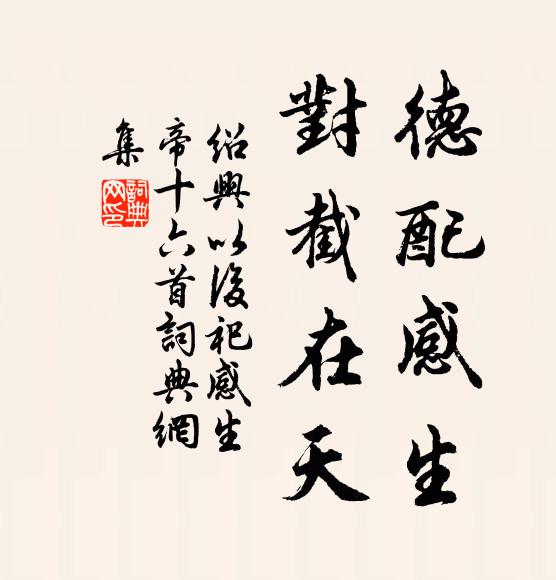 德配感生
對截在天
紹興以後祀感生
帝十六首詞典網
集
詞典
网印